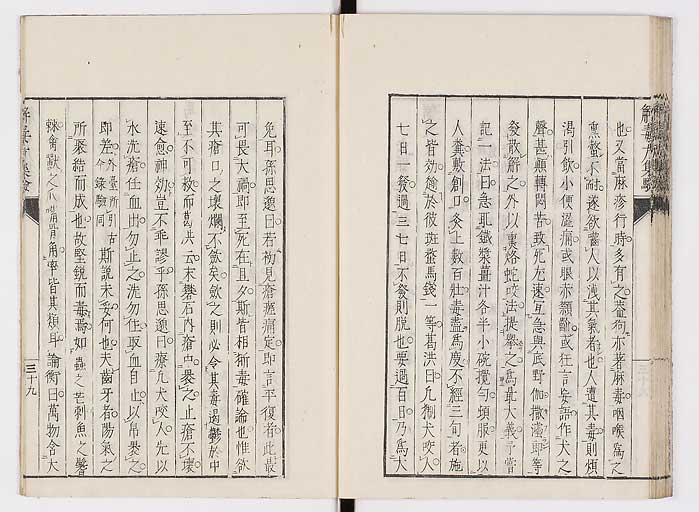 也又當麻疹行時多有之蓋狗亦著麻毒咽喉爲之
熏螫不耐遂欲囓人以洩其氣者也人遭其毒則煩
渴引飲小便澁痛或眼赤額齇或狂言妄語作犬之
聲甚顛轉悶苦致死尤速宜急與
發散解之外以裏烙蛇咬法提擧之爲此大義予嘗
記一法曰急取鐵漿薑汁各半小碗攪勻頻服更以
人糞敷創口灸上數百壯毒盡爲度不經三旬者施
之皆効愈於彼斑蝥馬錢一等葛洪曰凡猘犬咬人
七日一發過三七日不發則脫也要過百日乃爲大
免耳孫思邈曰若初見瘡瘥痛定即言平復者此最
可畏大禍即至死在且夕斯皆相猘毒確論也惟欲
其瘡口之壞爛不斂矣斂之則必令其毒遏鬱於中
至不可救而葛洪云末礬石内瘡中裹之止瘡不壞
速愈神効豈不乖謬乎孫思邈曰療凡犬咬人先以
水洗瘡任血出勿止之洗勿住取血自止以帛裹之
即差外臺所引古今錄驗同斯說未妥何也夫齒牙者陽氣之
所聚結而成也故堅銳而毒焉如蟲之芒刺魚之鬐
皆其類耳論衡曰萬物含大
三十九